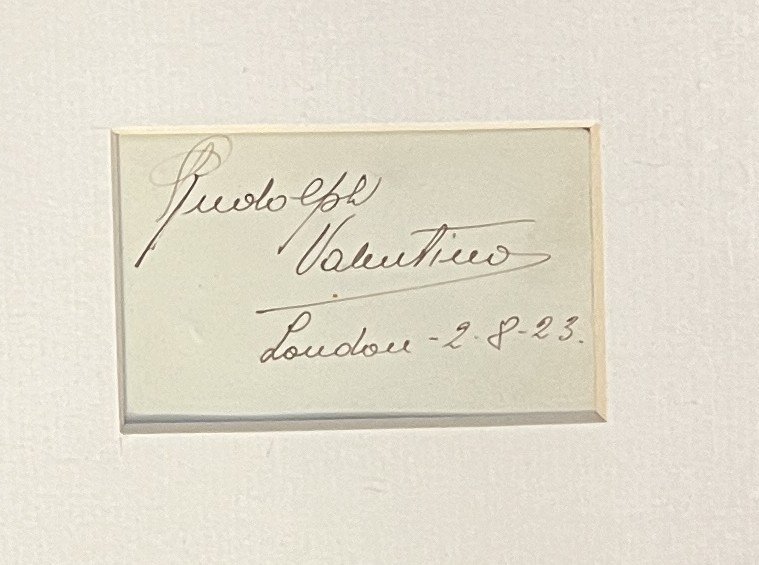 Rudolph
Valentino
London - 2-8-23.